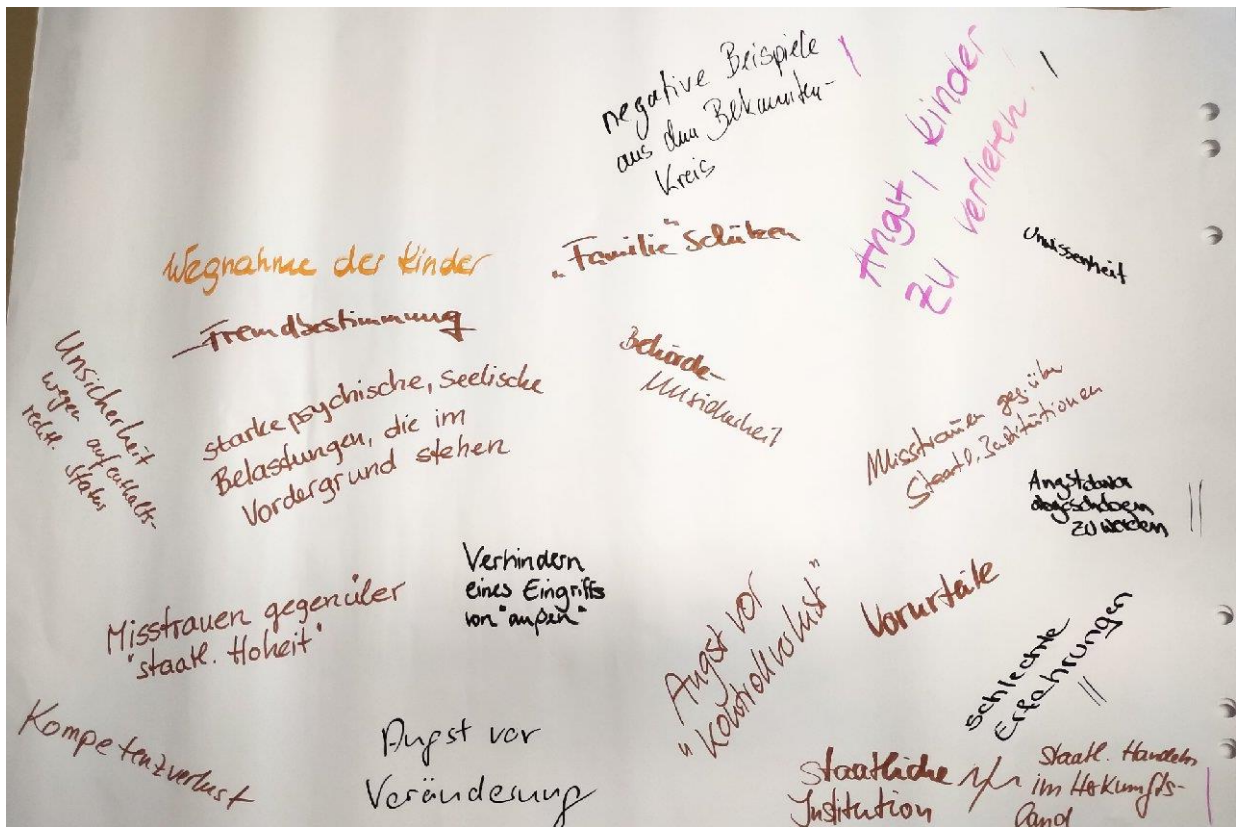 negative Beispiele
aus dem Bekannten-
Kreis
Angst, Kinder
zu verlieren
Unwissenheit
Wegnahme der Kinder
"Familie" schützen
Fremdbestimmung
Behörde-
Unsicherheit
Unsicherheit
wegen aufenthalts-
rechtl. Status
starke psychische, seelische
Belastungen, die im
Vordergrund stehen
Misstrauen geg.über
Staatl. Institutionen
Angst davor
abgeschoben
zu werden
Verhindern
eines Eingriffs
von "außen"
Misstrauen gegenüber
"staatl. Hoheit"
Angst vor
"Kontrollverlust"
Vorurteile
schlechte
Erfahrungen
Kompetenzverlust
Angst vor
Veränderung
staatliche
Institution
Staatl. Handeln
im Herkunfts-
land